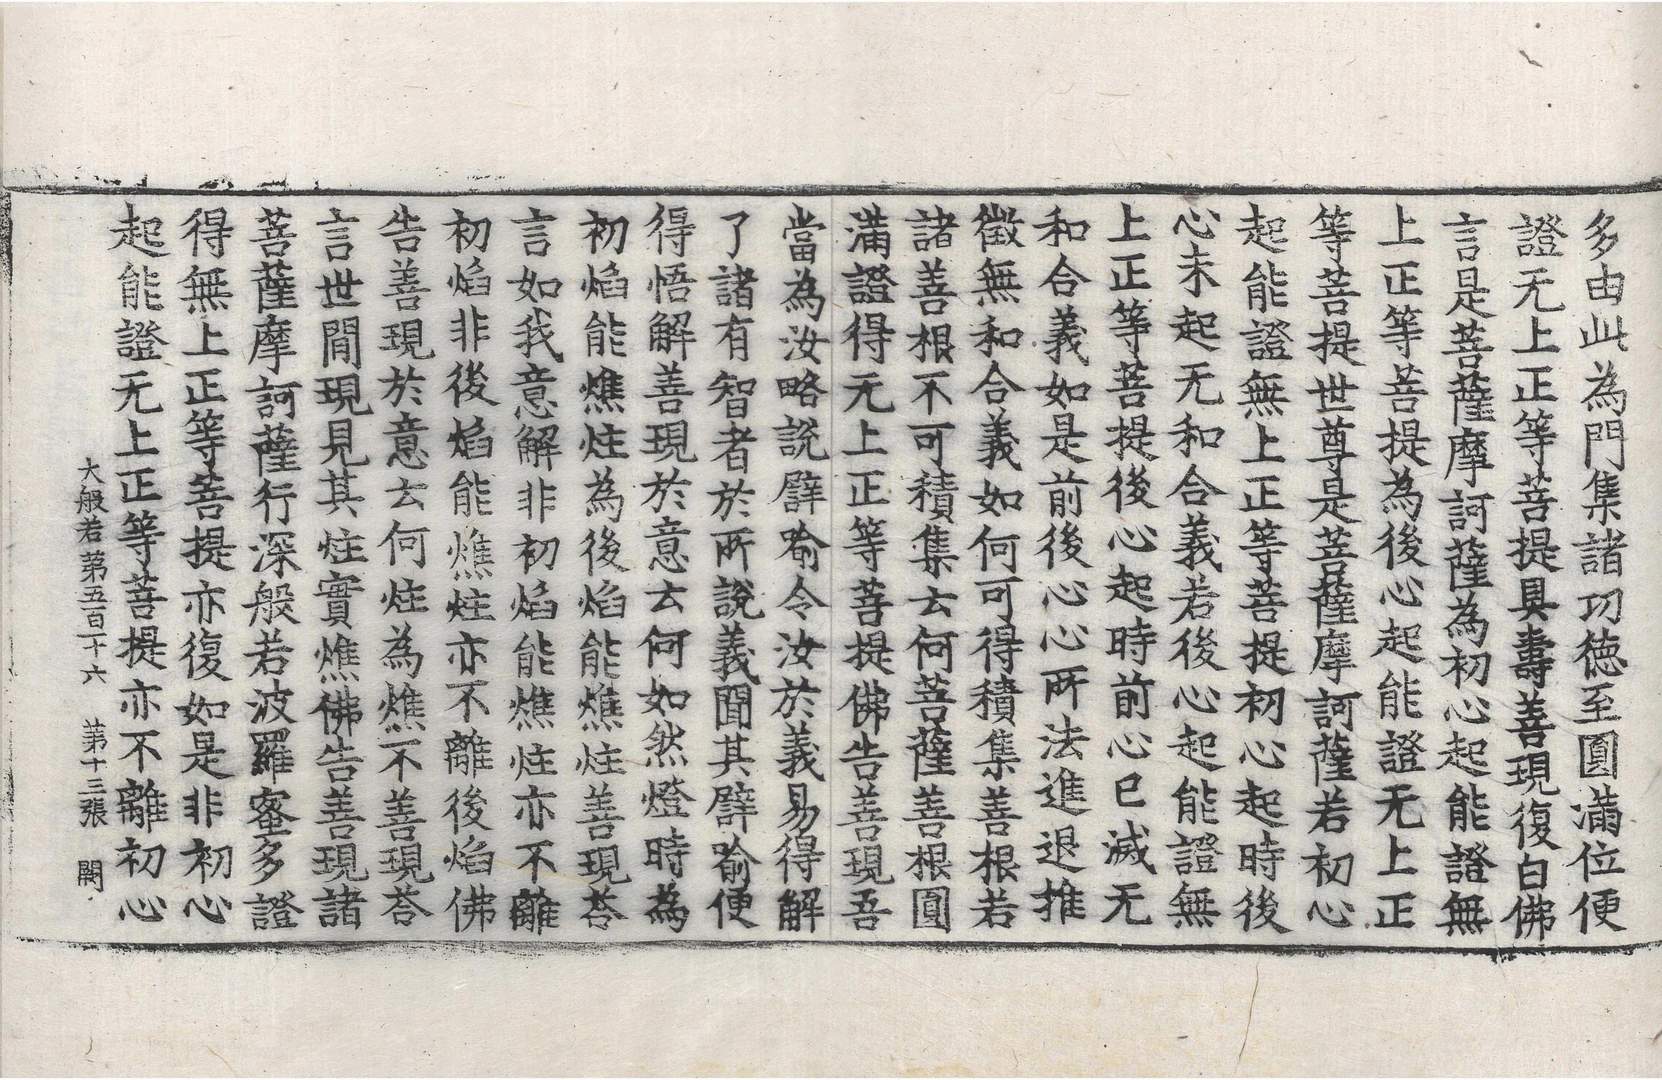 多由此為門集諸功德至圓滿位便
證无上正等菩提具壽善現復白佛
言是菩薩摩訶薩為初心起能證無
上正等菩提為後心起能證无上正
等菩提世尊是菩薩摩訶薩若初心
起能證無上正等菩提初心起時後
心未起无和合義若後心起能證無
上正等菩提後心起時前心已滅无
和合義如是前後心心所法進退推
徵無和合義如何可得積集善根若
諸善根不可積集云何菩薩善根圓
滿證得无上正等菩提佛告善現吾
當為汝略說譬喻令汝於義易得解
了諸有智者於所說義聞其譬喻便
得悟解善現於意云何如然燈時為
初焰能燋炷為後焰能燋炷善現荅
言如我意解非初焰能燋炷亦不離
初焰非後焰能燋炷亦不離後焰佛
告善現於意云何炷為燋不善現荅
言世間現見其炷實燋佛告善現諸
菩薩摩訶薩行深般若波羅蜜多證
得無上正等菩提亦復如是非初心
起能證无上正等菩提亦不離初心
大般若第五百十六 第十三張 闕